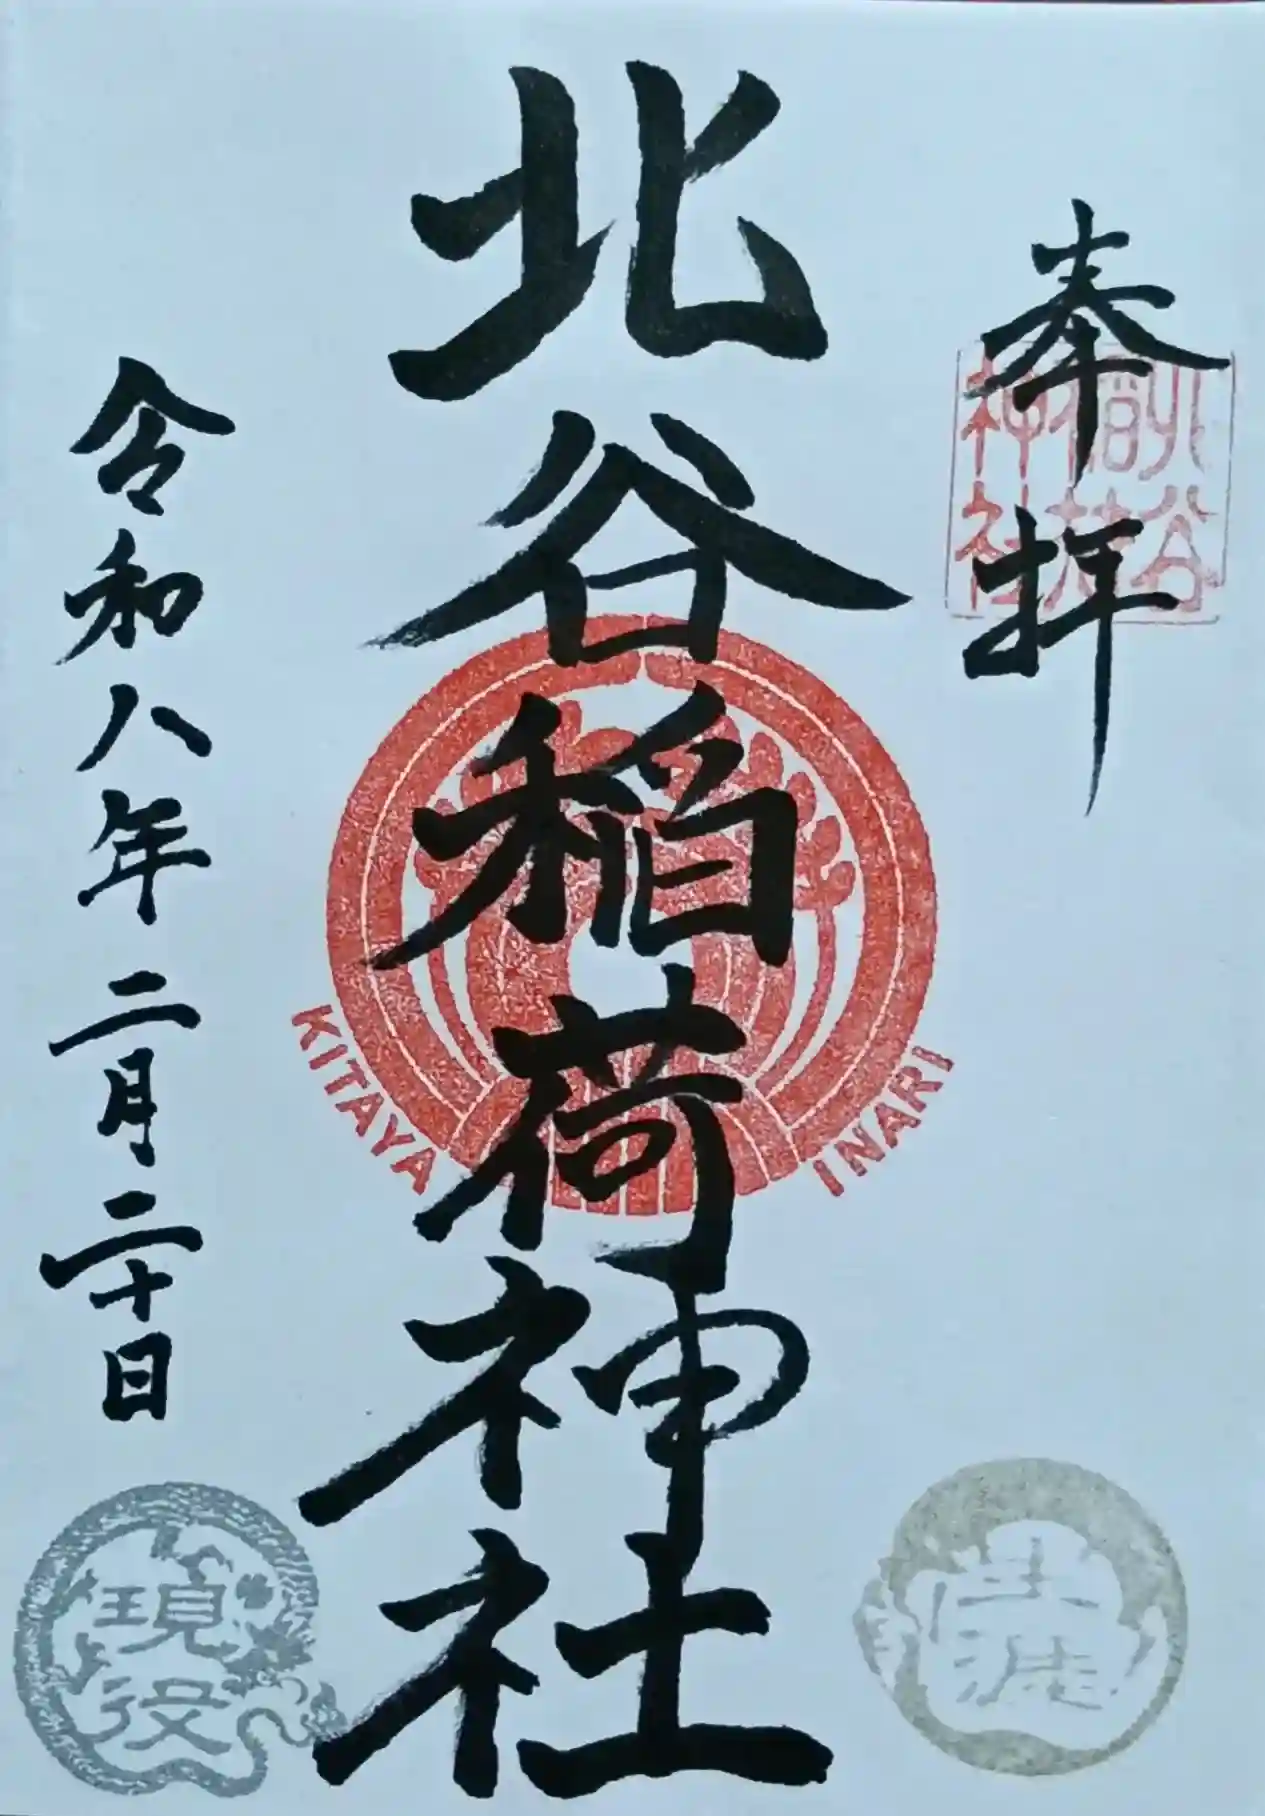 奉拝
北谷
稲荷
神社
北谷稲荷神社
KITAYA INARI
令和八年二月二十日
現役